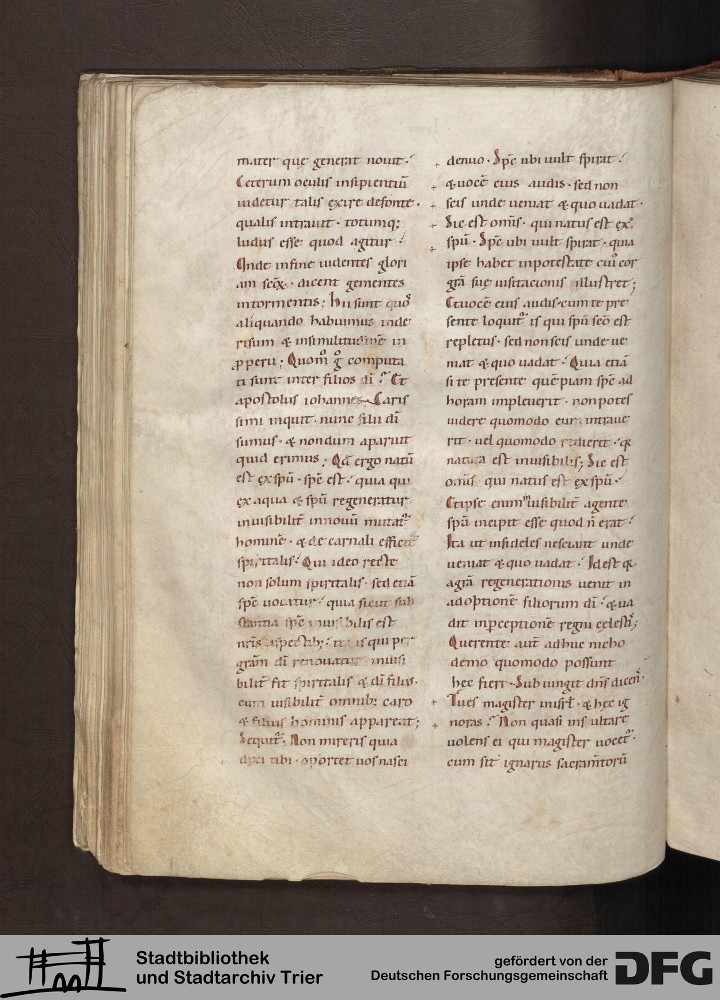 mater quę generat nouit.
Ceterum oculis insipientiū
uidetur talis exire defonte.
qualis intrauit. totumq;
ludus esse quod agitur.
Unde infine uidentes glori
am scōꝝ. dicent gementes
intormentis; Hii sunt quos
aliquando habuimus inde
risum & insimilitudinē in
ꝓperii; Quom̄ g computa
ti sunt inter filios dī. Et
apostolus iohannes. Caris
simi inquit. nunc filii dī
sumus. & nondum aparuit
quid erimus; Qđ ergo natū
est exspū. spē est. quia qui
ex aqua & spū regeneratur
inuisibilit innouū mutat
hominē. & de carnali effici
spiritalis. Qui ideo recte
non solum spiritalis. sed etiā
spē uocatur. quia sicut sub
stantia spē inuisibilis est
nrīs aspectib;
grām dī renouatur inuisi
bilit fit spiritalis & dī filius.
cum uisibilit omnib; caro
& filius hominis appareat;
Sequit. Non mireris quia
dixi tibi. oportet uos nasci
denuo. Spē ubi uult spirat.
& uocē eius audis. sed non
scis unde ueniat & quo uadat.
Sic est omīs. qui natus est ex
spū. Spē ubi uult spirat. quia
ipse habet inpotestate cui cor
grā suę uisitacionis illustret;
Et uocē eius audis. cum te pre
sente loquit is qui spū scō est
repletus. sed non scis unde ue
niat & quo uadat. Quia etiā
si te presente quēpiam spē ad
horam impleuerit. non potes
uidere quomodo eum intraue
rit. uel quomodo redierit. q
natura est inuisibilis; Sic est
omīs qui natus est ex spū.
Et ipse enim inuisibilit agente
spū incipit esse quod n̄ erat.
Ita ut infideles nesciant unde
ueniat & quo uadat. Id est q
agrā regenerationis uenit in
adoptionē filiorum dī. & ua
dit inpceptionē regni cęlesti;
Querente aut adhuc nicho
demo quomodo possunt
hec fieri. Subiungit dns dicen.
Tu es magister in isrl. & hec ig
noras. Non quasi insultare
uolens ei qui magister uocet.
cum sit ignarus sacramtorū
Stadtbibliothek
und Stadtarchiv Trier
gefördert von der
Deutschen Forschungsgemeinschaft
DFG